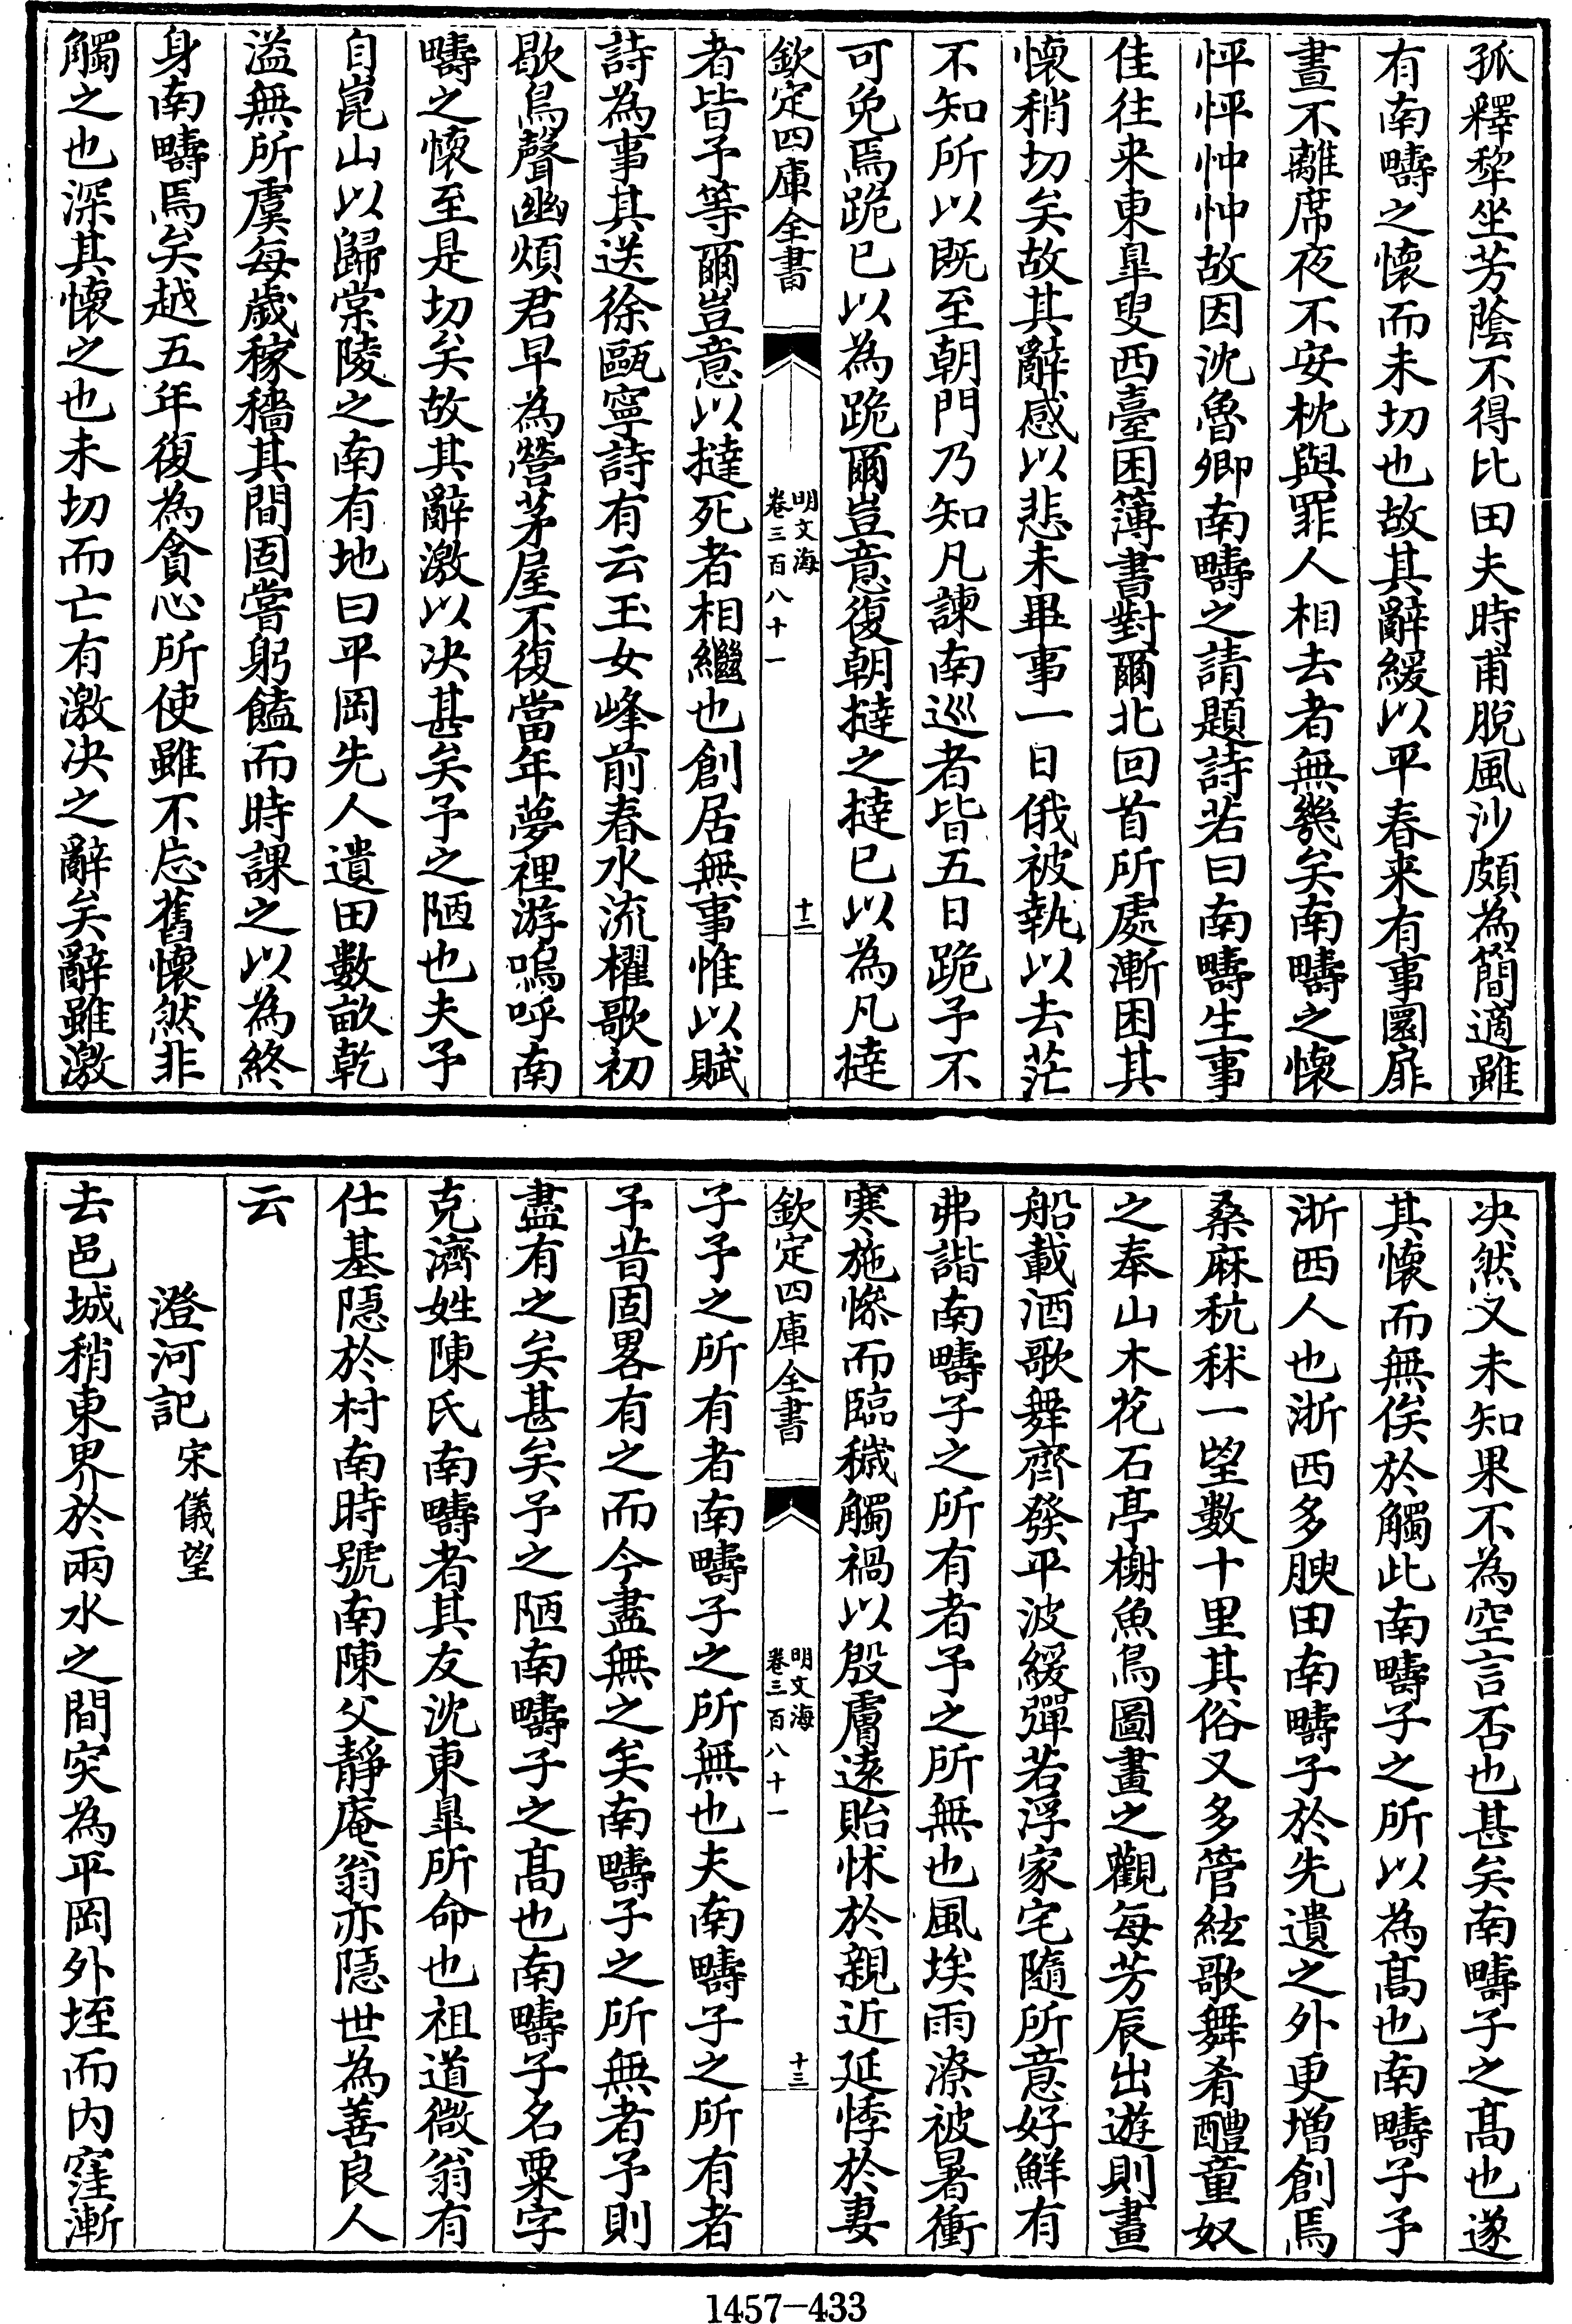 孤釋犂坐芳蔭不得比田夫時甫脫風沙頗為簡適雖
有南疇之懷而未切也故其辭緩以平春来有事圜扉
晝不離席夜不安枕與罪人相去者無幾矣南疇之懷
怦怦忡忡故因沈魯卿南疇之請題詩若曰南疇生事
佳往来東臯叟西臺困簿書對爾北回首所處漸困其
懷稍切矣故其辭感以悲未畢事一日俄被執以去茫
不知所以既至朝門乃知凡諫南巡者皆五日跪予不
可免焉跪已以為跪爾豈意復朝撻之撻已以為凡撻
欽定四庫全書
明文海
卷三百八十一
十二
者皆予等爾豈意以撻死者相繼也創居無事惟以賦
詩為事其送徐甌寧詩有云玉女峰前春水流櫂歌初
歇鳥聲幽煩君早為營茅屋不復當年夢裡游嗚呼南
疇之懷至是切矣故其辭激以决甚矣予之陋也夫予
自崑山以歸棠陵之南有地曰平岡先人遺田數畝乾
溢無所虞每歲稼穡其間固嘗躬饁而時課之以為終
身南疇焉矣越五年復為貪心所使雖不忘舊懷然非
觸之也深其懷之也未切而亡有激决之辭矣辭雖激
决然又未知果不為空言否也甚矣南疇子之髙也遂
其懷而無俟於觸此南疇子之所以為髙也南疇子予
浙西人也浙西多腴田南疇子於先遺之外更増創焉
桑麻秔秫一望數十里其俗又多管絃歌舞肴醴童奴
之奉山木花石亭榭魚鳥圖畫之觀每芳辰出遊則畫
船載酒歌舞齊發平波緩彈若浮家宅隨所意好鮮有
弗諧南疇子之所有者予之所無也風埃雨潦被暑衝
寒施慘而臨穢觸禍以殷膚逺貽怵於親近延悸於妻
欽定四庫全書
明文海
卷三百八十一
十三
子予之所有者南疇子之所無也夫南疇子之所有者
予昔固畧有之而今盡無之矣南疇子之所無者予則
盡有之矣甚矣予之陋南疇子之髙也南疇子名粟字
克濟姓陳氏南疇者其友沈東臯所命也祖道微翁有
仕基隱於村南時號南陳父靜庵翁亦隱世為善良人
云
澄河記 宋儀望
去邑城稍東界於兩水之間突為平岡外垤而内窪漸
1457-433